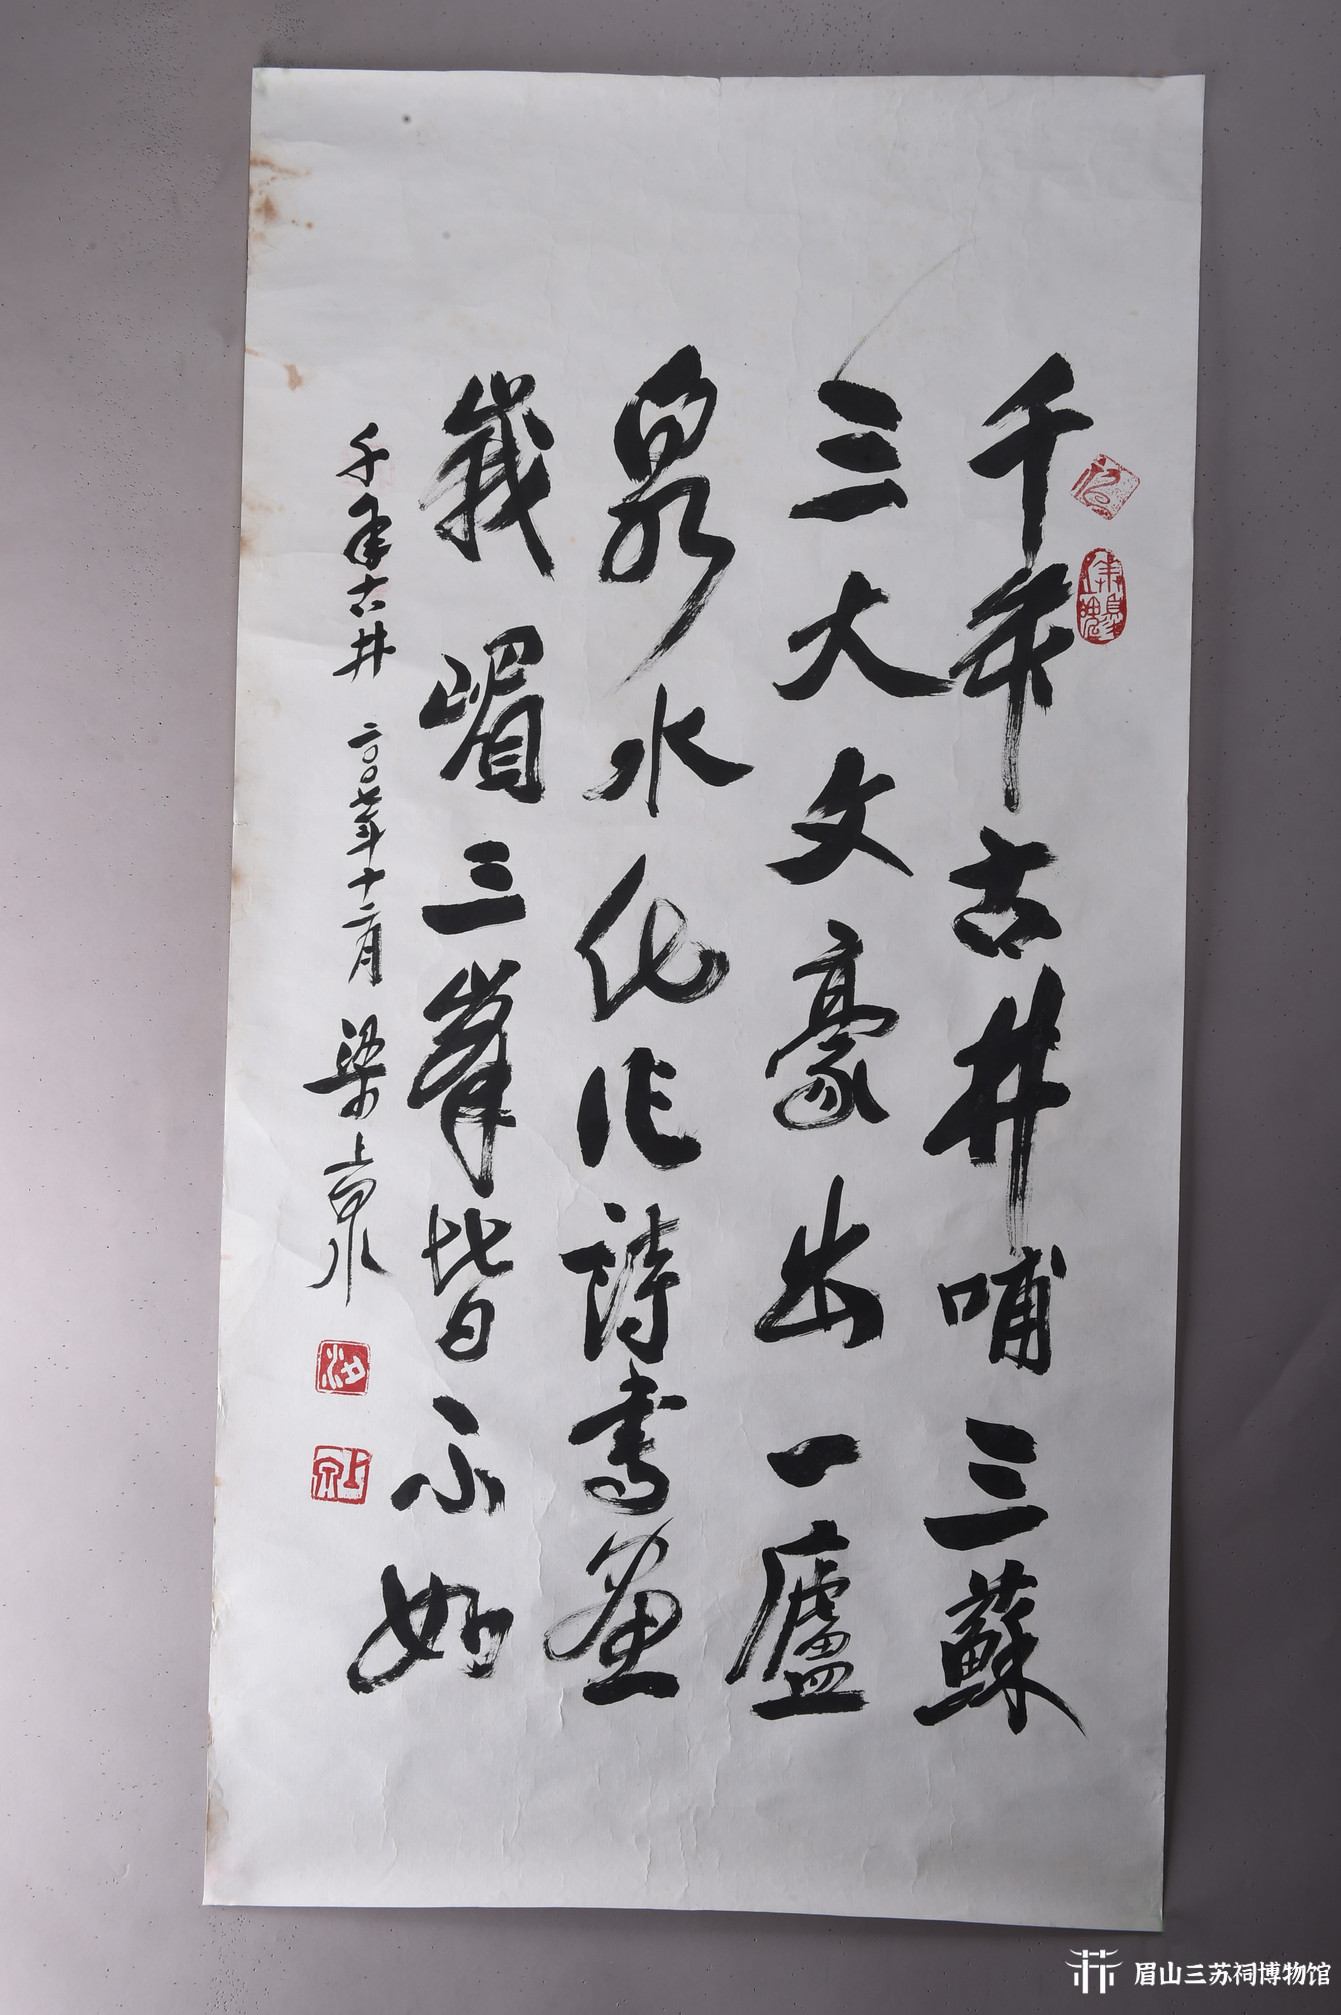 千年古井哺三蘇
三大文豪出一廬
泉水化作詩書画
峩嵋三峯皆不如
千年古井 二〇〇七年十二月 梁上泉
眉山三苏祠博物馆